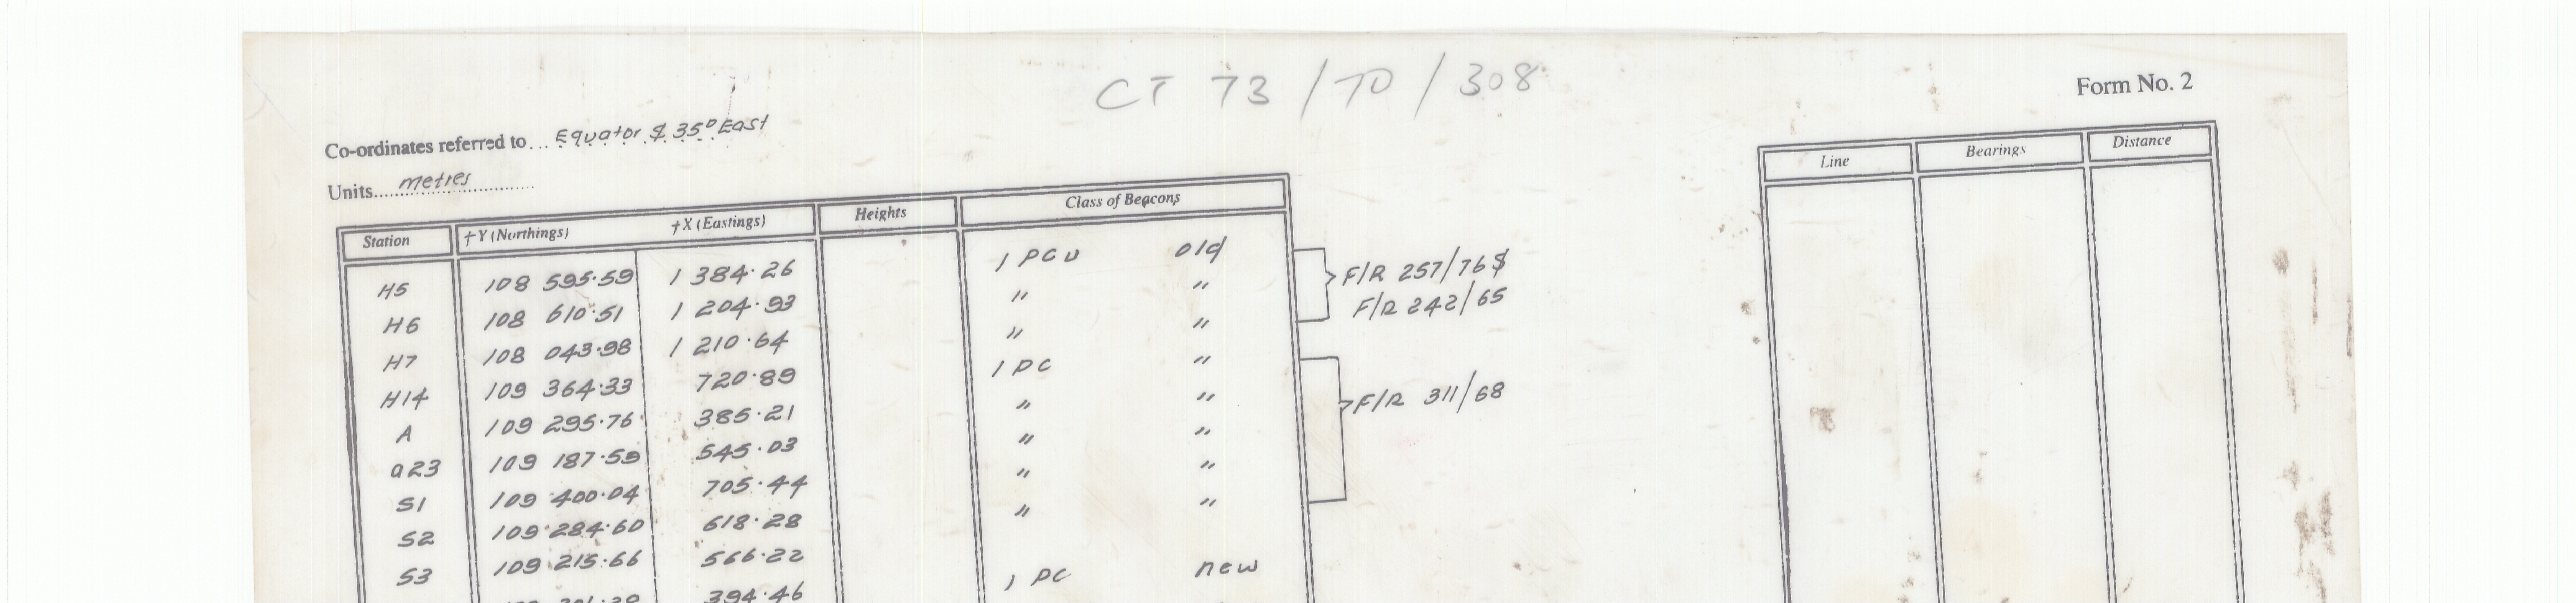 CT 73/TD/308
Form No. 2
Co-ordinates referred to... Equator & 35° East
Units... metres
Station †Y (Northings) †X (Eastings) Heights Class of Beacons
Line Bearings Distance
H5 108 595.59 1 384.26 1 PCU old
H6 108 610.51 1 204.93 " "
H7 108 043.98 1 210.64 " "
F/R 257/76 &
F/R 242/65
H14 109 364.33 720.89 1 PC "
A 109 295.76 385.21 " "
a23 109 187.59 545.03 " "
S1 109 400.04 705.44 " "
S2 109 284.60 618.28 " "
F/R 311/68
S3 109 215.66 566.22 1 PC new
394.46